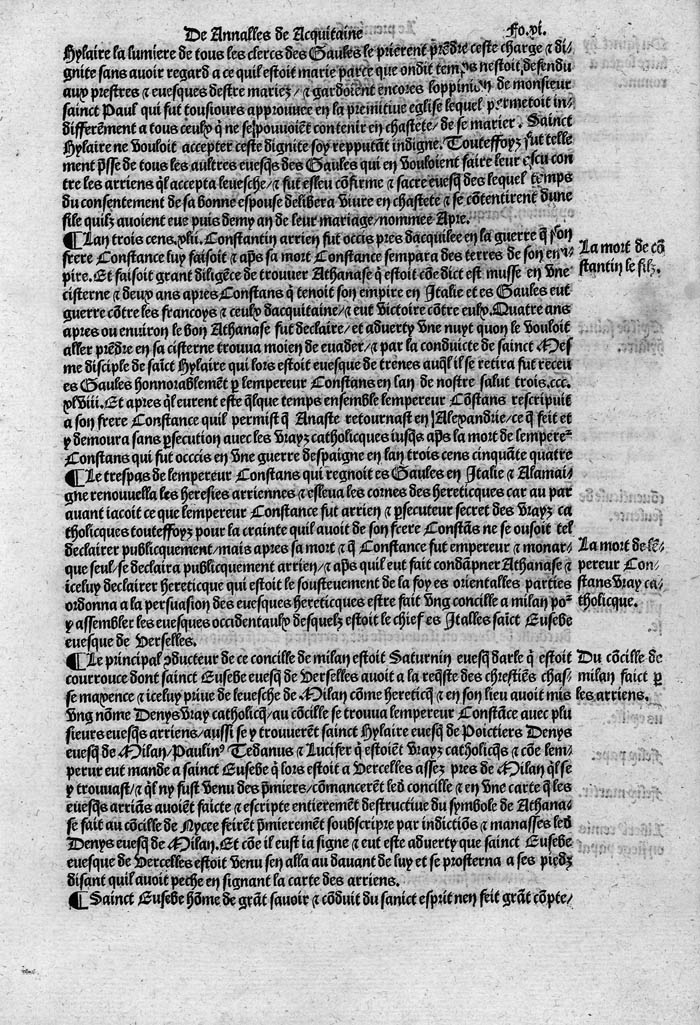 De Annalles de Acquitaine
Fo.vi.
Hylaire la lumiere de tous les clercs des Gaules le prierent pre̅dre ceste charge ⁊ di⸗
gnite sans avoir regard a ce quil estoit marie parce que ondit temps nestoit defendu
aux prestres ⁊ euesques destre mariez/ ⁊ gardoient encores loppinion de monsieur
sainct Paul qui fut tousiours approuuee en la premitiue eglise lequel permetoit in⸗
differe̅ment a tous ceulx q̅ ne se pouuoie̅t contenir en chastete/ de se marier. Sainct
Hylaire ne vouloit accepter ceste dignite soy repputa̅t indigne. Touteffoyz fut telle
ment p̅sse de tous les aultres euesq̅s des Gaules qui en vouloient faire leur escu con
tre les arriens q̅l accepta leuesche/ ⁊ fut esleu co̅firme ⁊ sacre euesq̅ des lequel temps
du consentement de sa bonne espouse delibera viure en chastete ⁊ se co̅tentirent dune
fille quilz auoient eue puis demy an de leur mariage/ nommee Apre.
¶ Lan trois cens.xlii. Constantin arrien fut occis pres dacquilee en la guerre q̅ son
frere Constance luy faisoit ⁊ ap̅s sa mort Constance sempara des terres de son em⸗
pire. Et faisoit grant dilige̅ce de trouuer Athanase q̅ estoit co̅e dict est musse en vne
cisterne ⁊ deux ans apres Constans q̅ tenoit son empire en Italie et es Gaules eut
guerre co̅tre les francoys ⁊ ceulx dacquitaine/ ⁊ eut victoire co̅tre eulx. Quatre ans
apres ou enuiron le bon Athanase fut declaire/ et aduerty vne nuyt quon le vouloit
aller pre̅dre en sa cisterne trouua moien de euader/ ⁊ par la conduicte de sainct Mes
me disciple de sai̅ct Hylaire qui lors estoit euesque de treues auq̅l il se retira fut receu
es Gaules honnorableme̅t p lempereur Constans en lan de nostre salut trois.ccc.
xlviii. Et apres q̅l eurent este q̅lque temps ensemble lempereur Co̅stans rescripuit
a son frere Constance quil permist q̅ Anaste retournast en Alexandrie/ ce q̅ feit et
y demoura sans psecution auec les vrayz catholicques iusq̅s ap̅s la mort de lempere²
Constans qui fut occcis en vne guerre despaigne en lan trois cens cinqua̅te quatre
¶ Le trespas de lempereur Constans qui regnoit es Gaules en Italie ⁊ Alamai⸗
gne renouuella les heresies arriennes ⁊ esleua les cornes des hereticques car au par
auant iacoit ce que lempereur Constance fut arrien ⁊ psecuteur secret des vrayz ca
tholicques touteffoyz pour la crainte quil auoit de son frere Consta̅s ne se ousoit tel
declairer publicquement/ mais apres sa mort ⁊ q̅ Constance fut empereur ⁊ monar⸗
que seul/ se declaira publicquement arrien/ ⁊ ap̅s quil eut fait conda̅pner Athanase ⁊
iceluy declairer hereticque qui estoit le soustenement de la foy es orientalles parties
ordonna a la persuasion des euesques hereticques estre fait vng concille a milan po²
y assembler les euesques occidentaulx desquelz estoit le chief es Italles saict Eusebe
euesque de Verselles.
¶ Le principal ꝯducteur de ce concille de milan estoit Saturnin euesq̅ darle q̅ estoit
courrouce dont sainct Eusebe euesq̅ de Verselles auoit a la req̅ste des chrestie̅s chas⸗
se mayence ⁊ iceluy priue de leuesche de Milan co̅me hereticq̅ ⁊ en son lieu auoit mis
vng no̅me Denys vray catholicq̅/ au co̅cille se trouua lempereur Consta̅ce auec plu
sieurs euesq̅s arriens/ aussi se y trouuere̅t sainct Hylaire euesq̅ de Poictiers Denys
euesq̅ de Milan/ Paulin⁹ Tedanus ⁊ Lucifer q̅ estoie̅t vrayz catholicq̅s ⁊ co̅e lem⸗
perur eut mande a sainct Eusebe q̅ lors estoit a Vercelles assez pres de Milan q̅l se
y trouuast/ ⁊ q̅l ny fust venu des p̅miers/ co̅mancere̅t led concille ⁊ en vne carte q̅ les
euesq̅s arria̅s auoie̅t faicte ⁊ escripte entiereme̅t destructiue du symbole de Athana⸗
se fait au co̅cille de Nycee feire̅t p̅mierement soubscripre par indictio̅s ⁊ manasses led
Denys euesq̅ de Milan. Et co̅e il eust ia signe ⁊ eut este aduerty que sainct Eusebe
euesque de Vercelles estoit venu sen alla au dauant de luy et se prosterna a ses piedz
disant quil auoit peche en signant la carte des arriens.
¶ Sainct Eusebe ho̅me de gra̅t sauoir ⁊ co̅duit du sanict esprit nen feit gra̅t co̅pte/
La mort de co̅
stantin le filz.
La mort de le̅⸗
pereur Con⸗
stans vray ca⸗
tholicque.
Du co̅cille de
milan faict p
les arriens.